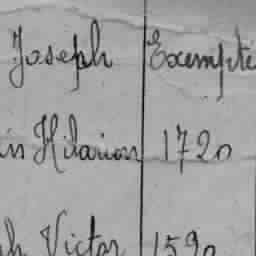 Joseph Exempté
in Hilarion 1720
h Victor 1590